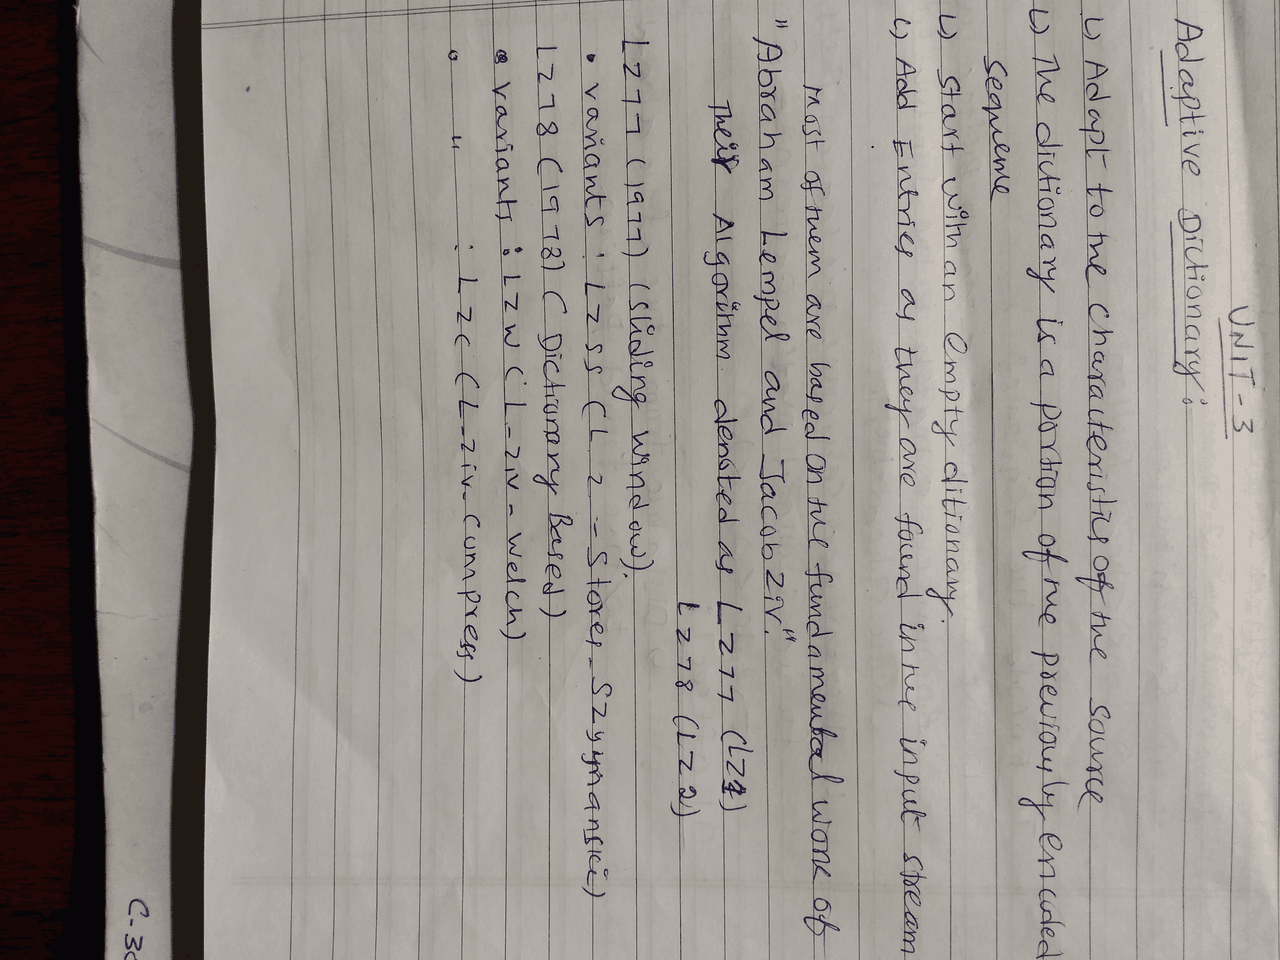 UNIT-3
Adaptive Dictionary:
↳ Adapt to the characteristics of the source
↳ The dictionary is a portion of the previously encoded
sequence
↳ Start with an empty ditionary.
↳ Add Entries as they are found in the input stream
Most of them are based on the fundamental work of
"Abraham Lempel and Jacob Ziv."
Their Algorithm denoted as LZ77 (LZ1)
LZ78 (LZ2)
LZ77 (1977) (Sliding window).
• variants : LZSS (LZ-Storer-Szymanskii)
LZ78 (1978) (Dictionary Based)
• variants : LZW (L-Ziv-Welch)
• " : LZC (L-Ziv-Compress)